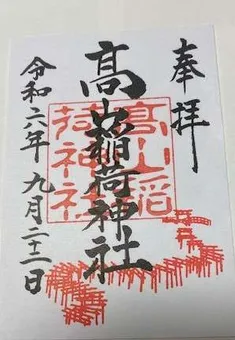 奉拝
高山稲荷神社
高山稲
荷神社
令和六年 九月二十二日